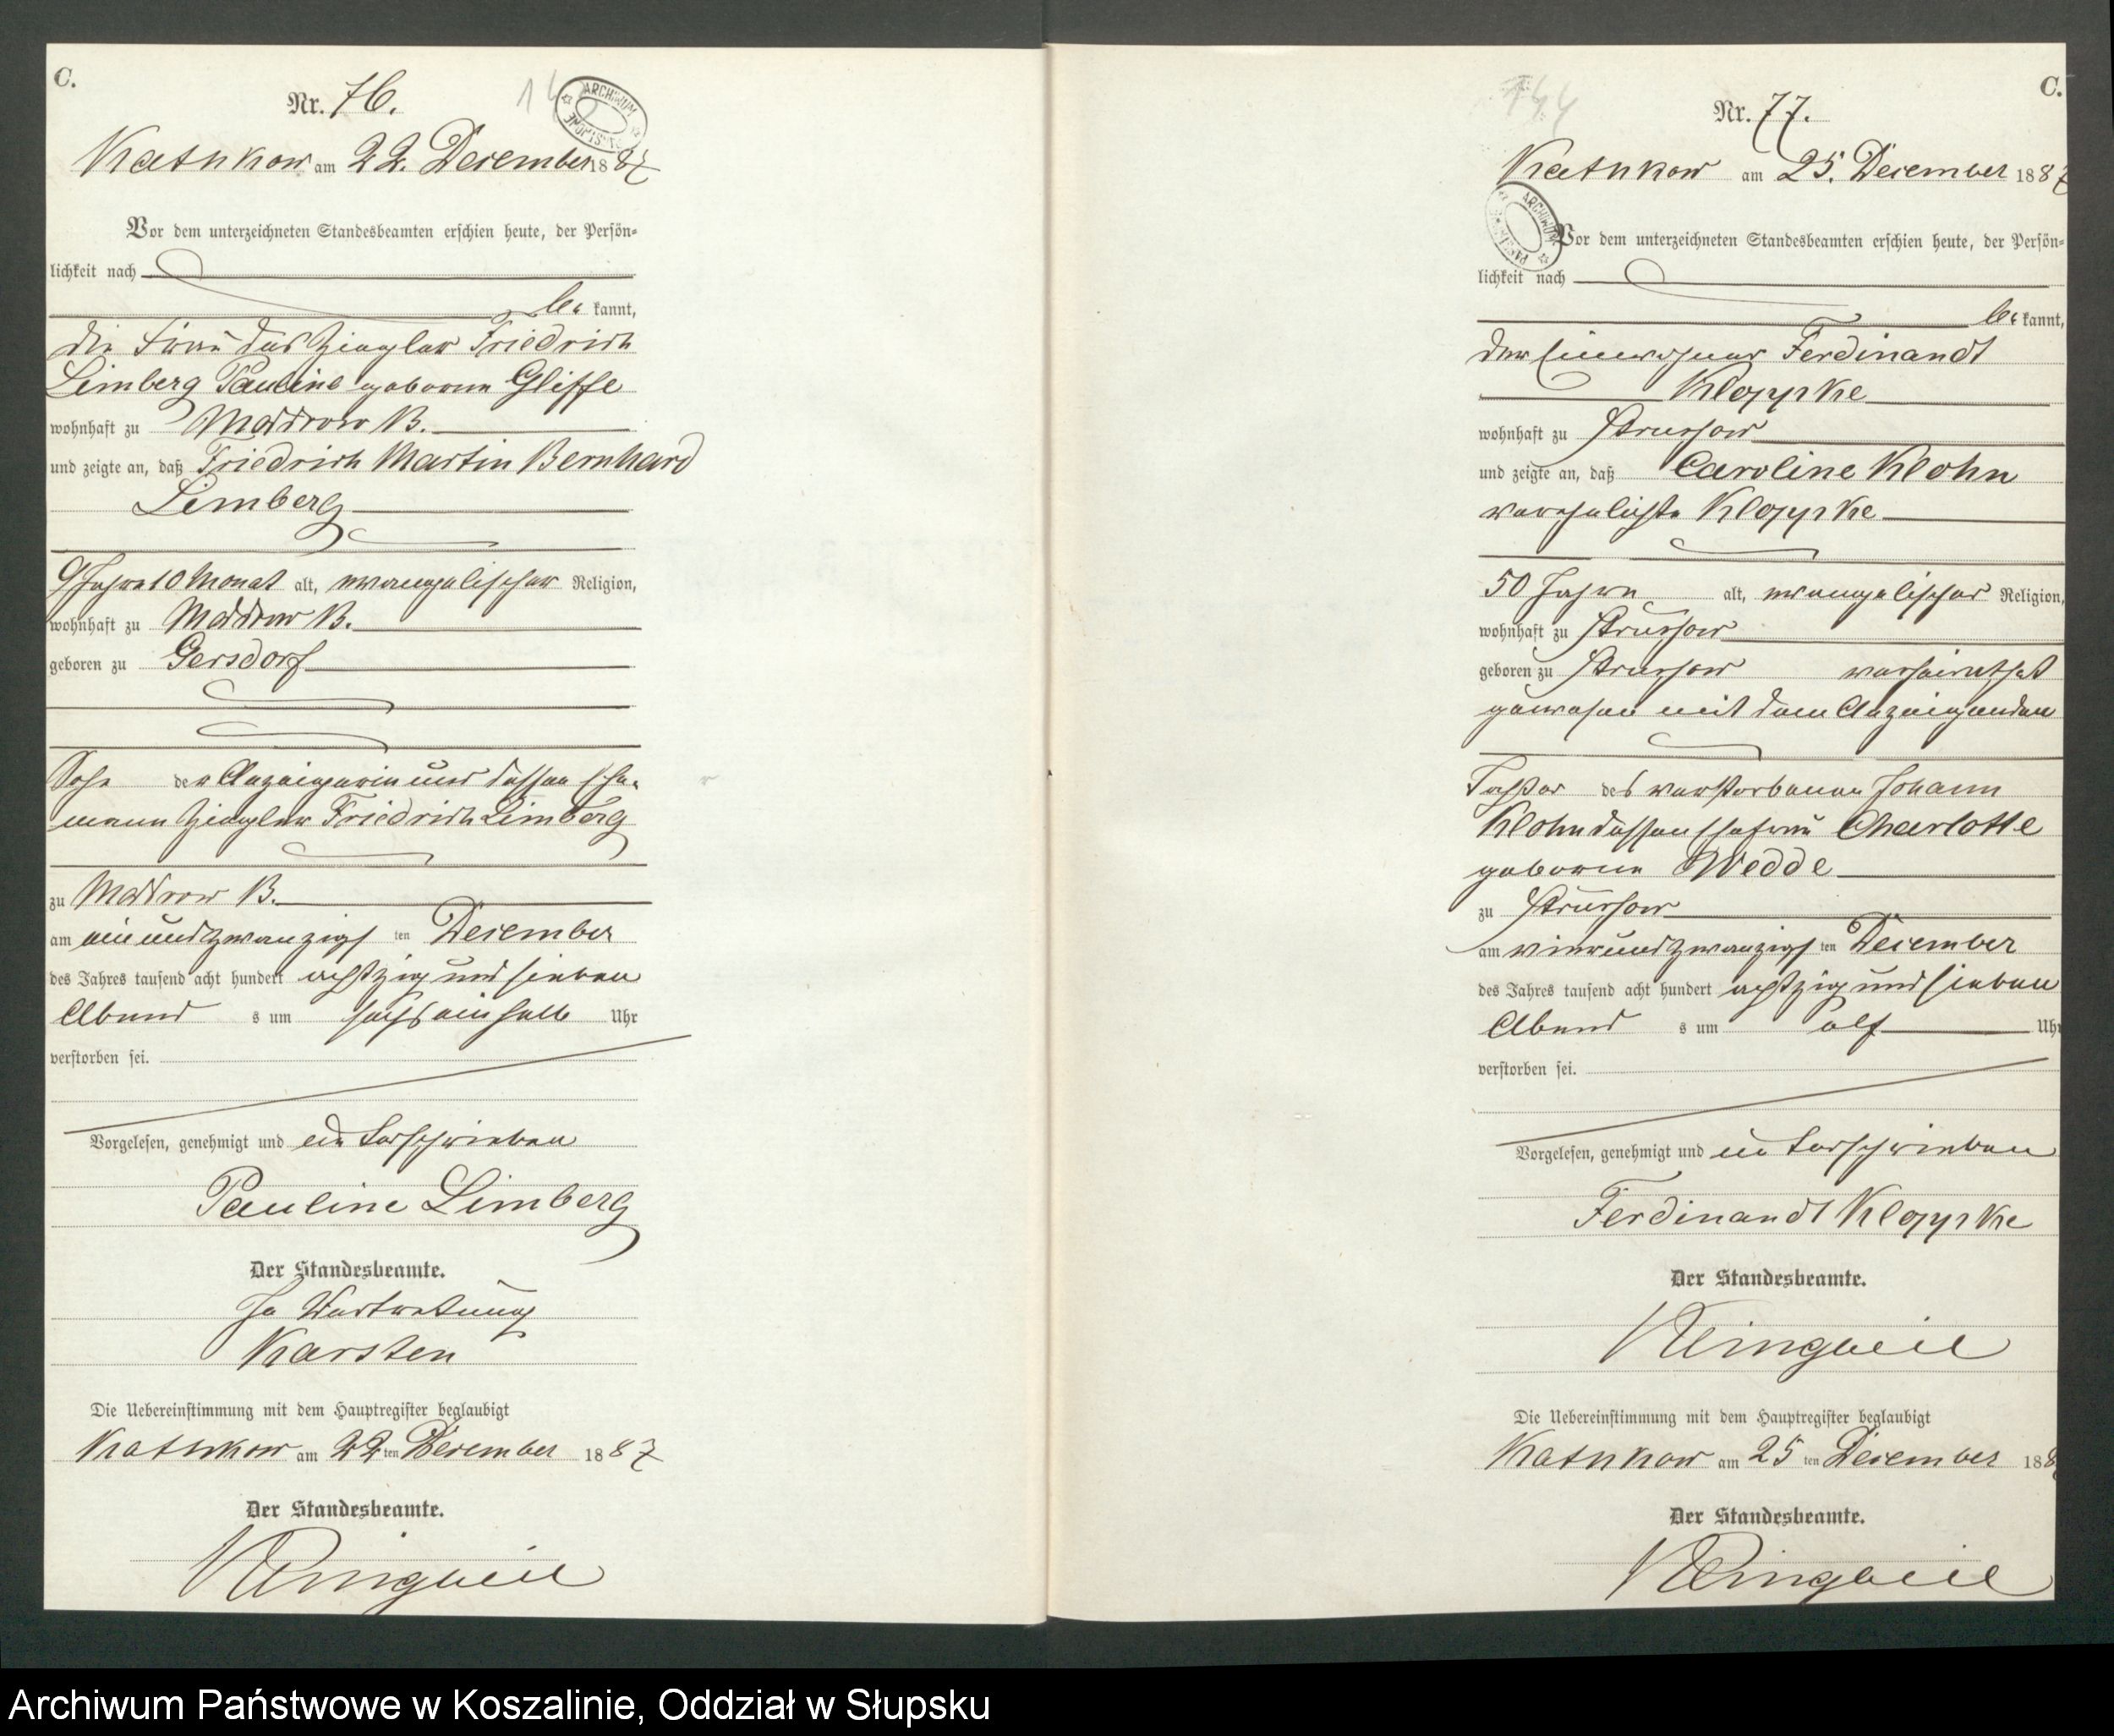 C.
Nr. 76.
ARCHIWUM
Katnkow am 22. December 1887
Vor dem unterzeichneten Standesbeamten erschien heute, der Persön-
lichkeit nach
be kannt,
die Frau des Ziegler Friedrich
Limberg Pauline geborne Gliffe
wohnhaft zu Moddrow B.
und zeigte an, daß Friedrich Martin Bernhard
Limberg
9 Jahre 10 Monat alt, evangelischer Religion,
wohnhaft zu Moddrow B.
geboren zu Gersdorf
Sohn der Anzeigerin und dessen Ehe-
mann Ziegler Friedrich Limberg
zu Moddrow B.
am ein und zwanzigs ten December
des Jahres tausend acht hundert achtzig und sieben
Abend s um sechs ein halb Uhr
verstorben sei.
Vorgelesen, genehmigt und unterschrieben
Pauline Limberg
Der Standesbeamte.
In Vertretung
Karsten
Die Uebereinstimmung mit dem Hauptregister beglaubigt
Katnkow am 22 ten December 1887
Der Standesbeamte.
C.
144
Nr. 77.
Katnkow am 25. December 1887
ARCHIWUM
Vor dem unterzeichneten Standesbeamten erschien heute, der Persön-
lichkeit nach
be kannt,
der Einwohner Ferdinandt
Kloppke
wohnhaft zu Strussow
und zeigte an, daß Caroline Klohn
verehelichte Kloppke
50 Jahre alt, evangelischer Religion,
wohnhaft zu Strussow
geboren zu Strussow verheirathet
gewesen mit dem Anzeigenden
Tochter des verstorbenen Johann
Klohn dessen Ehefrau Charlotte
geborne Wedde
zu Strussow
am vierundzwanzigs ten December
des Jahres tausend acht hundert achtzig und sieben
Abend s um elf Uhr
verstorben sei.
Vorgelesen, genehmigt und unterschrieben
Ferdinandt Kloppke
Der Standesbeamte.
Die Uebereinstimmung mit dem Hauptregister beglaubigt
Katnkow am 25 ten December 188
Der Standesbeamte.
Archiwum Państwowe w Koszalinie, Oddział w Słupsku